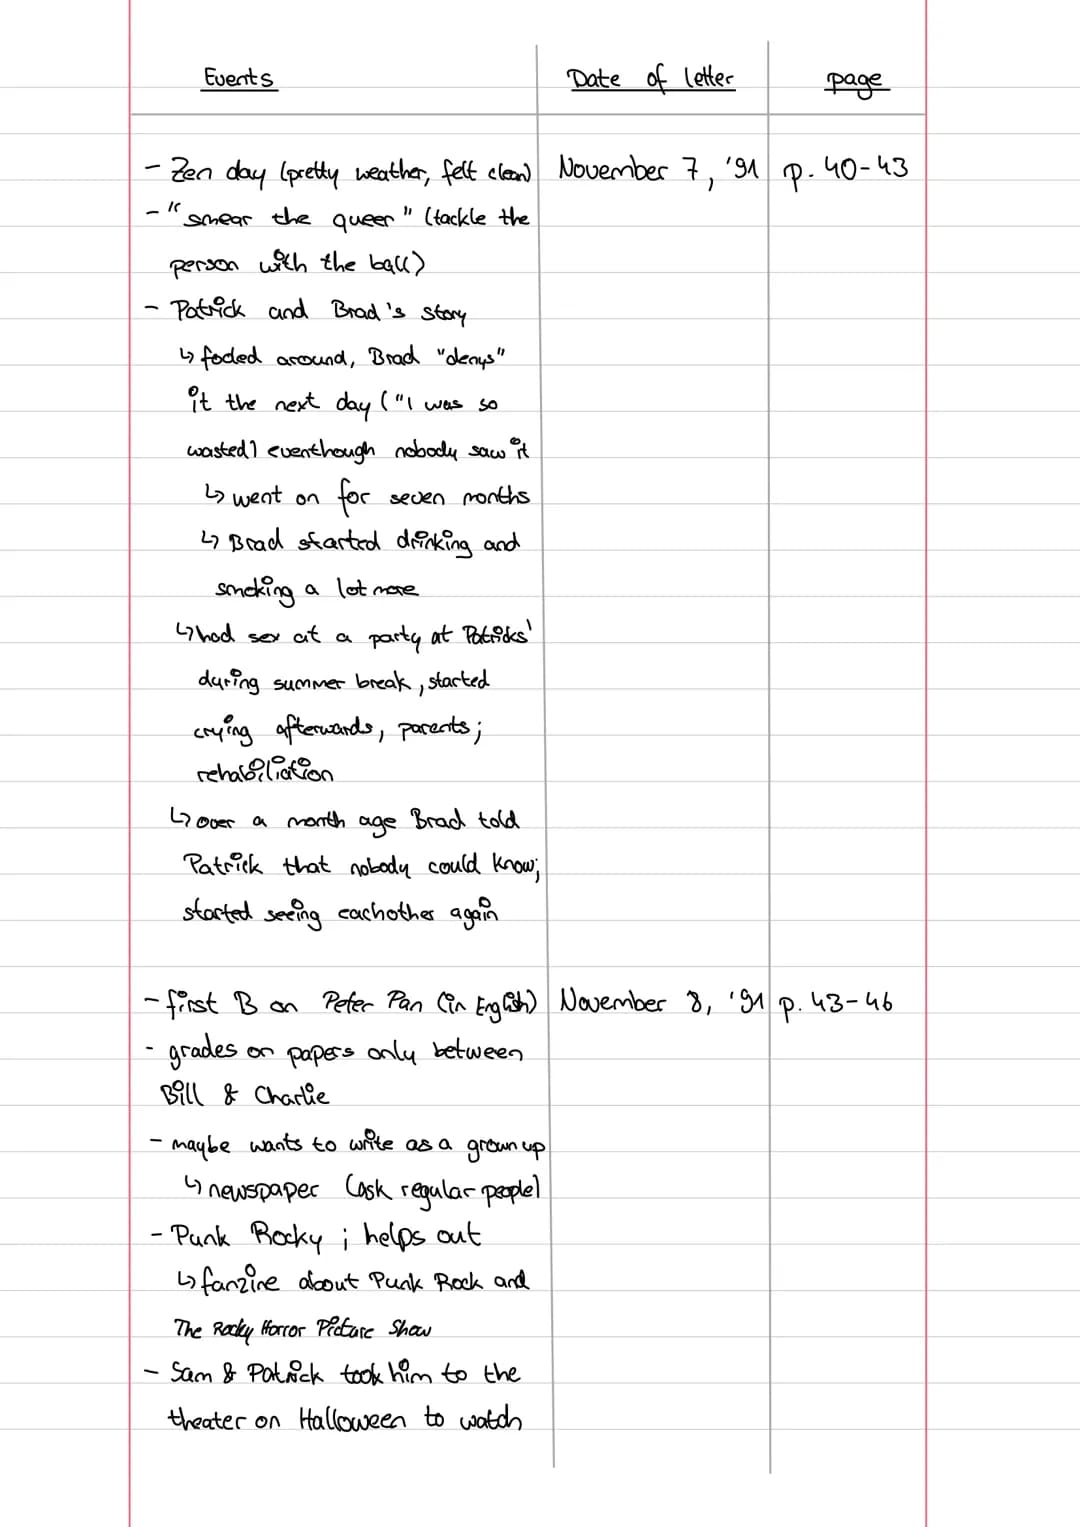 Events Date of letter page
- Zen day (pretty weather, felt clean) November 7, '91 p. 40-43
- "smear the queer" (tackle the
person with the ball)
- Patrick and Brad's story
↳ fooled around, Brad "denys"
it the next day ("I was so
wasted) eventhough nobody saw it
↳ went on for seven months
↳ Brad started drinking and
smoking a lot more
↳ had sex at a party at Patricks'
during summer break, started
crying afterwards, parents;
rehabiliation
↳ over a month age Brad told
Patrick that nobody could know;
started seeing eachother again
- first B on Peter Pan (in English) November 8, '91 p. 43-46
- grades on papers only between
Bill & Charlie
- maybe wants to write as a grown up
↳ newspaper (ask regular people)
- Punk Rocky ; helps out
↳ fanzine about Punk Rock and
The Rocky Horror Picture Show
- Sam & Patrick took him to the
theater on Halloween to watch